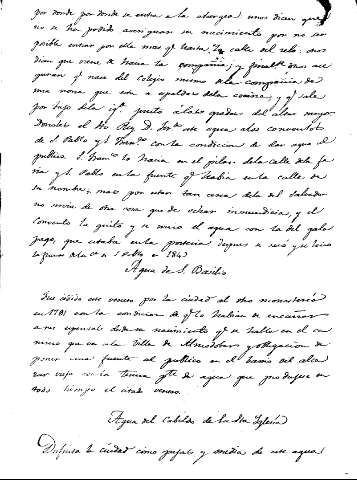 por donde por donde se entra a la atargea unos dicen que
no se ha podido averiguar su nacimiento por no ser
posible entrar por ella mas q.e hasta la calle del relo: otros
dicen que viene de hacia la compañia; y finalm.te otros ase
guran q.e nace del Colegio mismo de la compañia de
una noria que esta a espaldas de la cocina; y q.e sale
por bajo de la ig.a junto á las gradas del altar mayor
Donolas el Sto Rey D. Fer.do este agua a los conventos
de S. Pablo y S. Fran.co con la condicion de dar agua al
publico S. Fran.co lo hacia en el pilar de la calle de la fe
ria y S. Pablo en la fuente q.e habia en la calle de
su nombre; mas por estar tan cerca de la del Salvador
no servia de otra cosa que de echar inmundicia, y el
convento la quitó y se unio el agua con la del gala
pago, que estaba en la porteria despues se secó y se hizo
la fuente de la C.e de S. Pablo en 1843
Agua de S. Basilio
Fue cedido este venero por la ciudad al dho monasterio
en 1781 con la condicion de q.e lo habian de encañar
a sus espensas desde su nacimiento q.e se halla en el ca
mino que va a la Villa de Almodobar y obligacion de
poner una fuente al publico en el barrio del alca
zar viejo con la tercera p.te de agua que produgese en
todo tiempo el citado venero.
Agua del Cabildo de la Sta Iglesia
Disfruta la ciudad como paja y media de este agua